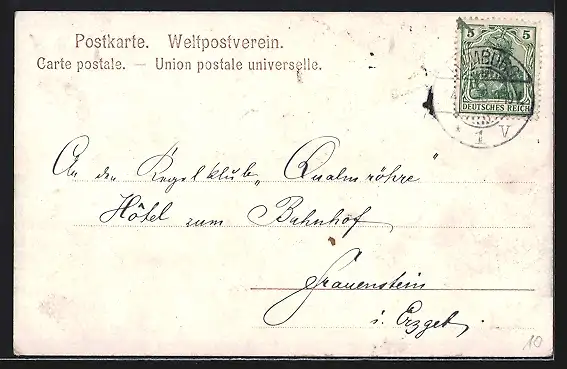 Postkarte. Weltpostverein.
Carte postale. — Union postale universelle.
5 5
DEUTSCHES REICH
1 V
An den Kegelklub „Qualmröhre"
Hôtel zum Bahnhof
Frauenstein
i. Erzgeb.
10